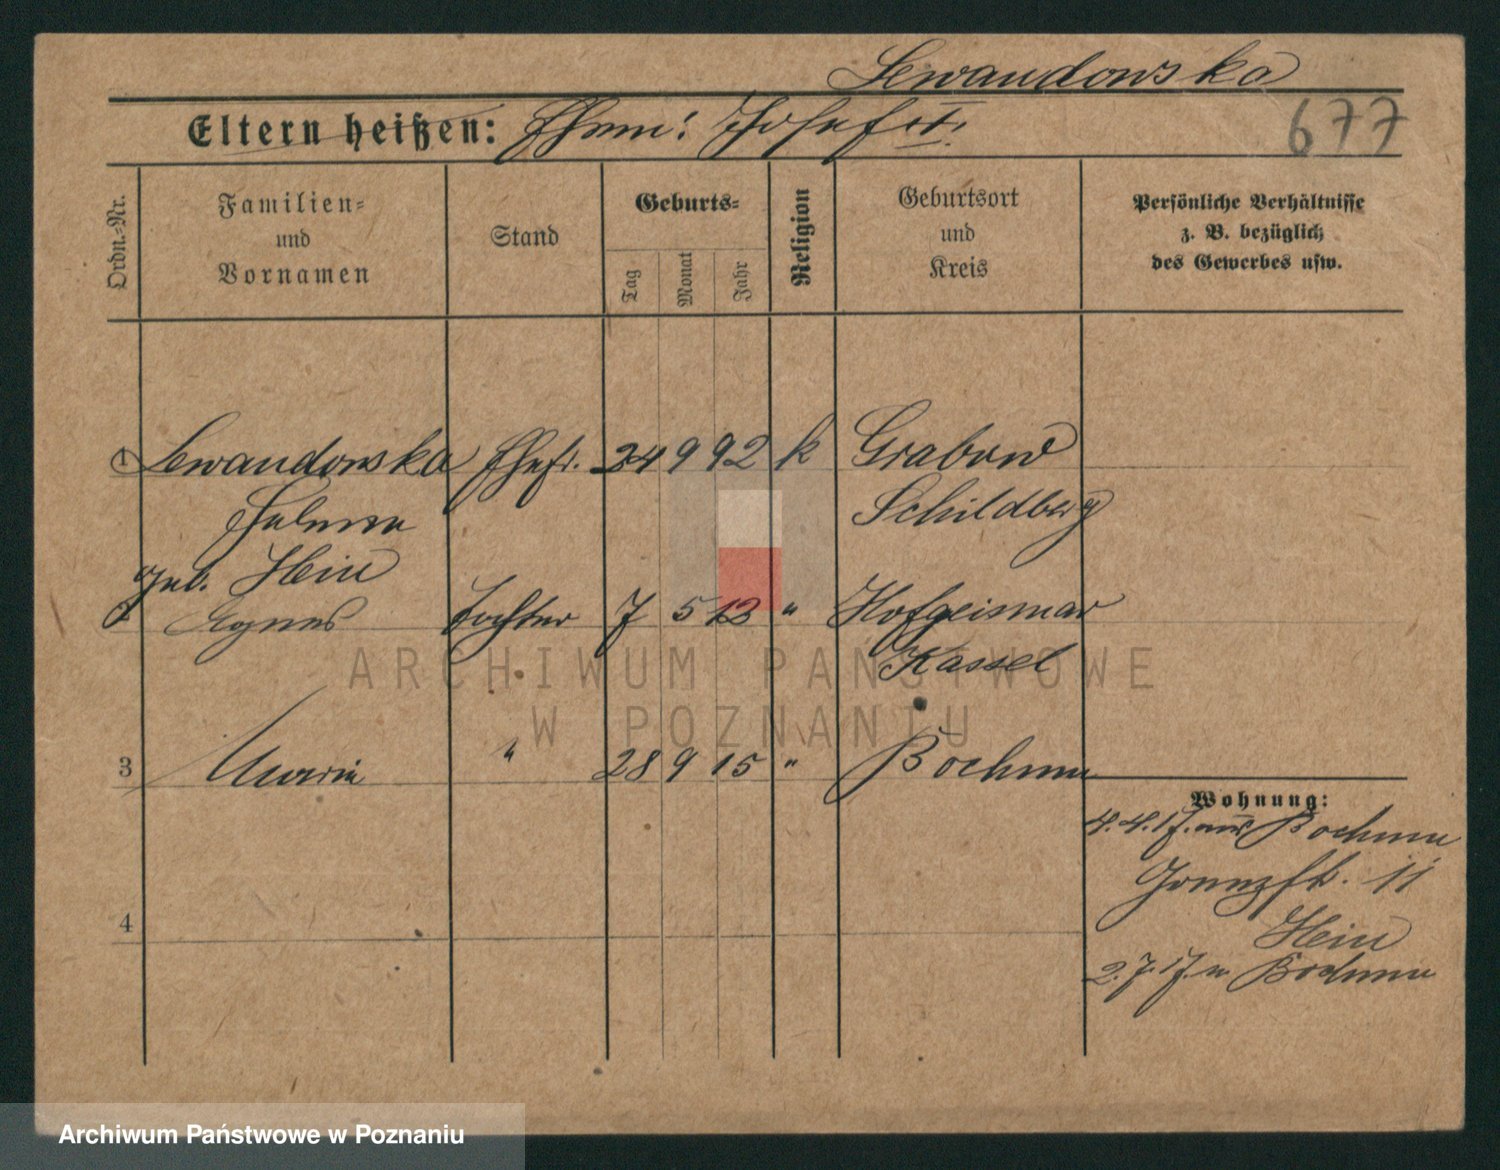 Lewandowska
Eltern heißen: Ehem: Josef II.
677
Ordn.-Nr.
Familien-
und
Vornamen
Stand
Geburts-
Tag
Monat
Jahr
Religion
Geburtsort
und
Kreis
Persönliche Verhältnisse
z. B. bezüglich
des Gewerbes usw.
1 Lewandowska Ehefr. 24 9 92 k Grabow
Helena Schildberg
geb. Hein
2 Agnes Tochter 7 5 12 " Hofgeismar
Kassel
3 Maria " 28 9 15 " Bochum
Wohnung:
4.4.17. aus Bochum
11
Hein
4
2.7.17. n. Bochum
ARCHIWUM PAŃSTWOWE
W POZNANIU
Archiwum Państwowe w Poznaniu